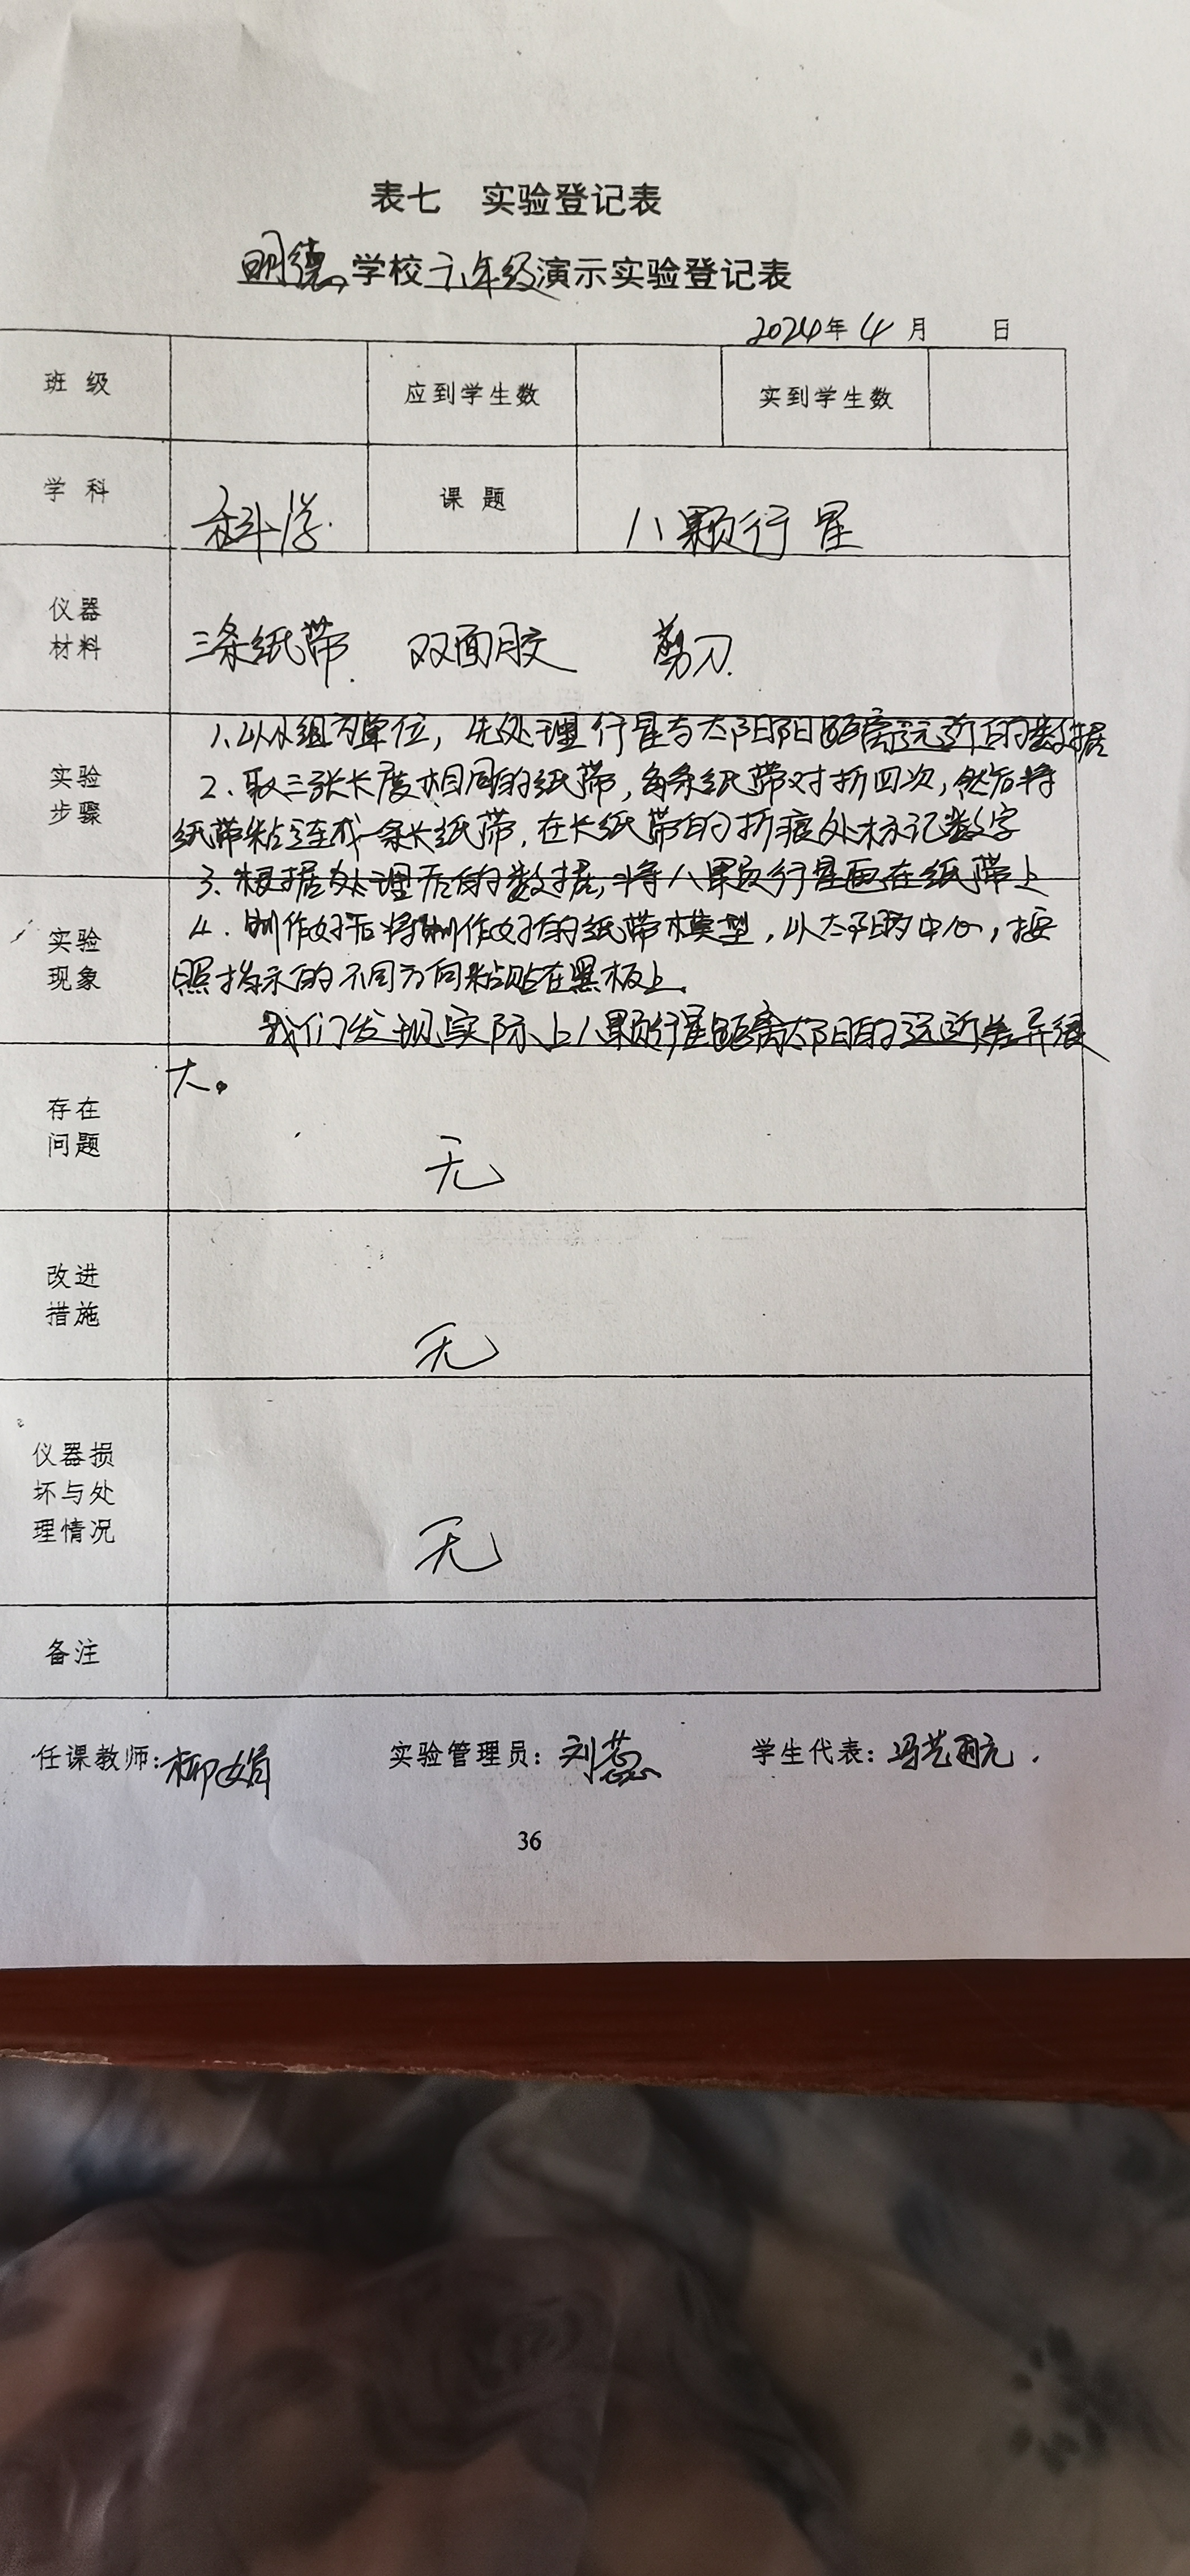 表七 实验登记表
明德 学校 六年级 演示实验登记表
2024年 4 月 日
班 级 应到学生数 实到学生数
学 科 科学 课 题 八颗行星
仪器
材料
三条纸带 双面胶 剪刀
实验
步骤
1、以小组为单位，先处理行星与太阳阳距离远近的数据
2、取三张长度相同的纸带，每条纸带对折四次，然后将
纸带粘连成一条长纸带，在长纸带的折痕处标记数字
3、根据处理后的数据，将八颗行星画在纸带上
实验
现象
4、制作好后将制作好的纸带模型，以太阳为中心，按
照指示的不同方向粘贴在黑板上。
我们发现实际上八颗行星距离太阳的远近差异很
大。
存在
问题
无
改进
措施
无
仪器损
坏与处
理情况
无
备注
任课教师：柳娟 实验管理员：刘蕊 学生代表：冯艺
36